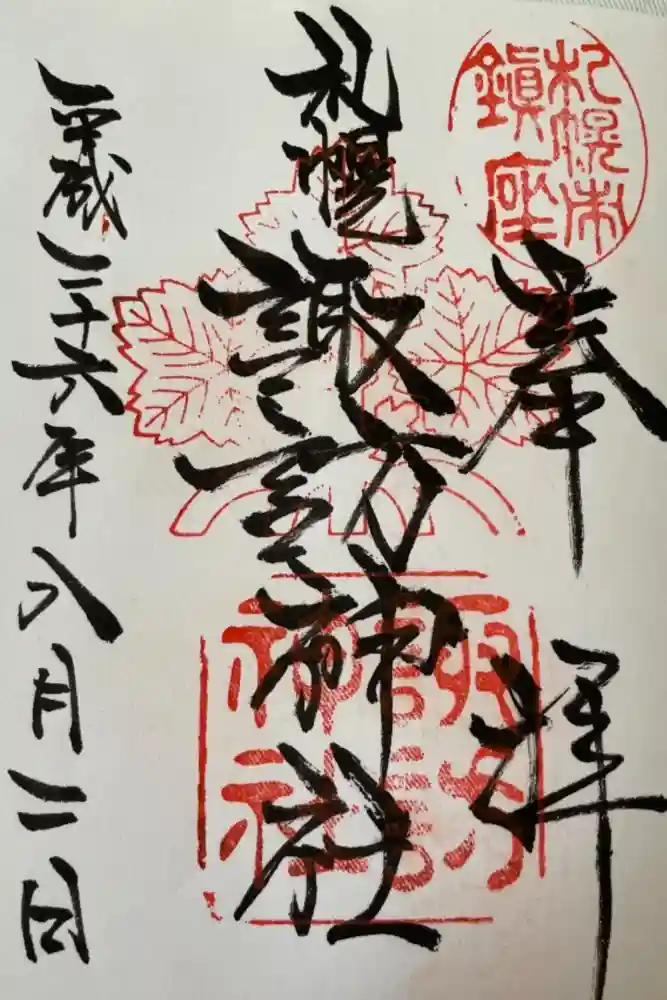 奉拝
札幌市
鎮座
札幌
諏訪神社
諏訪
神社
平成二十六年八月二日